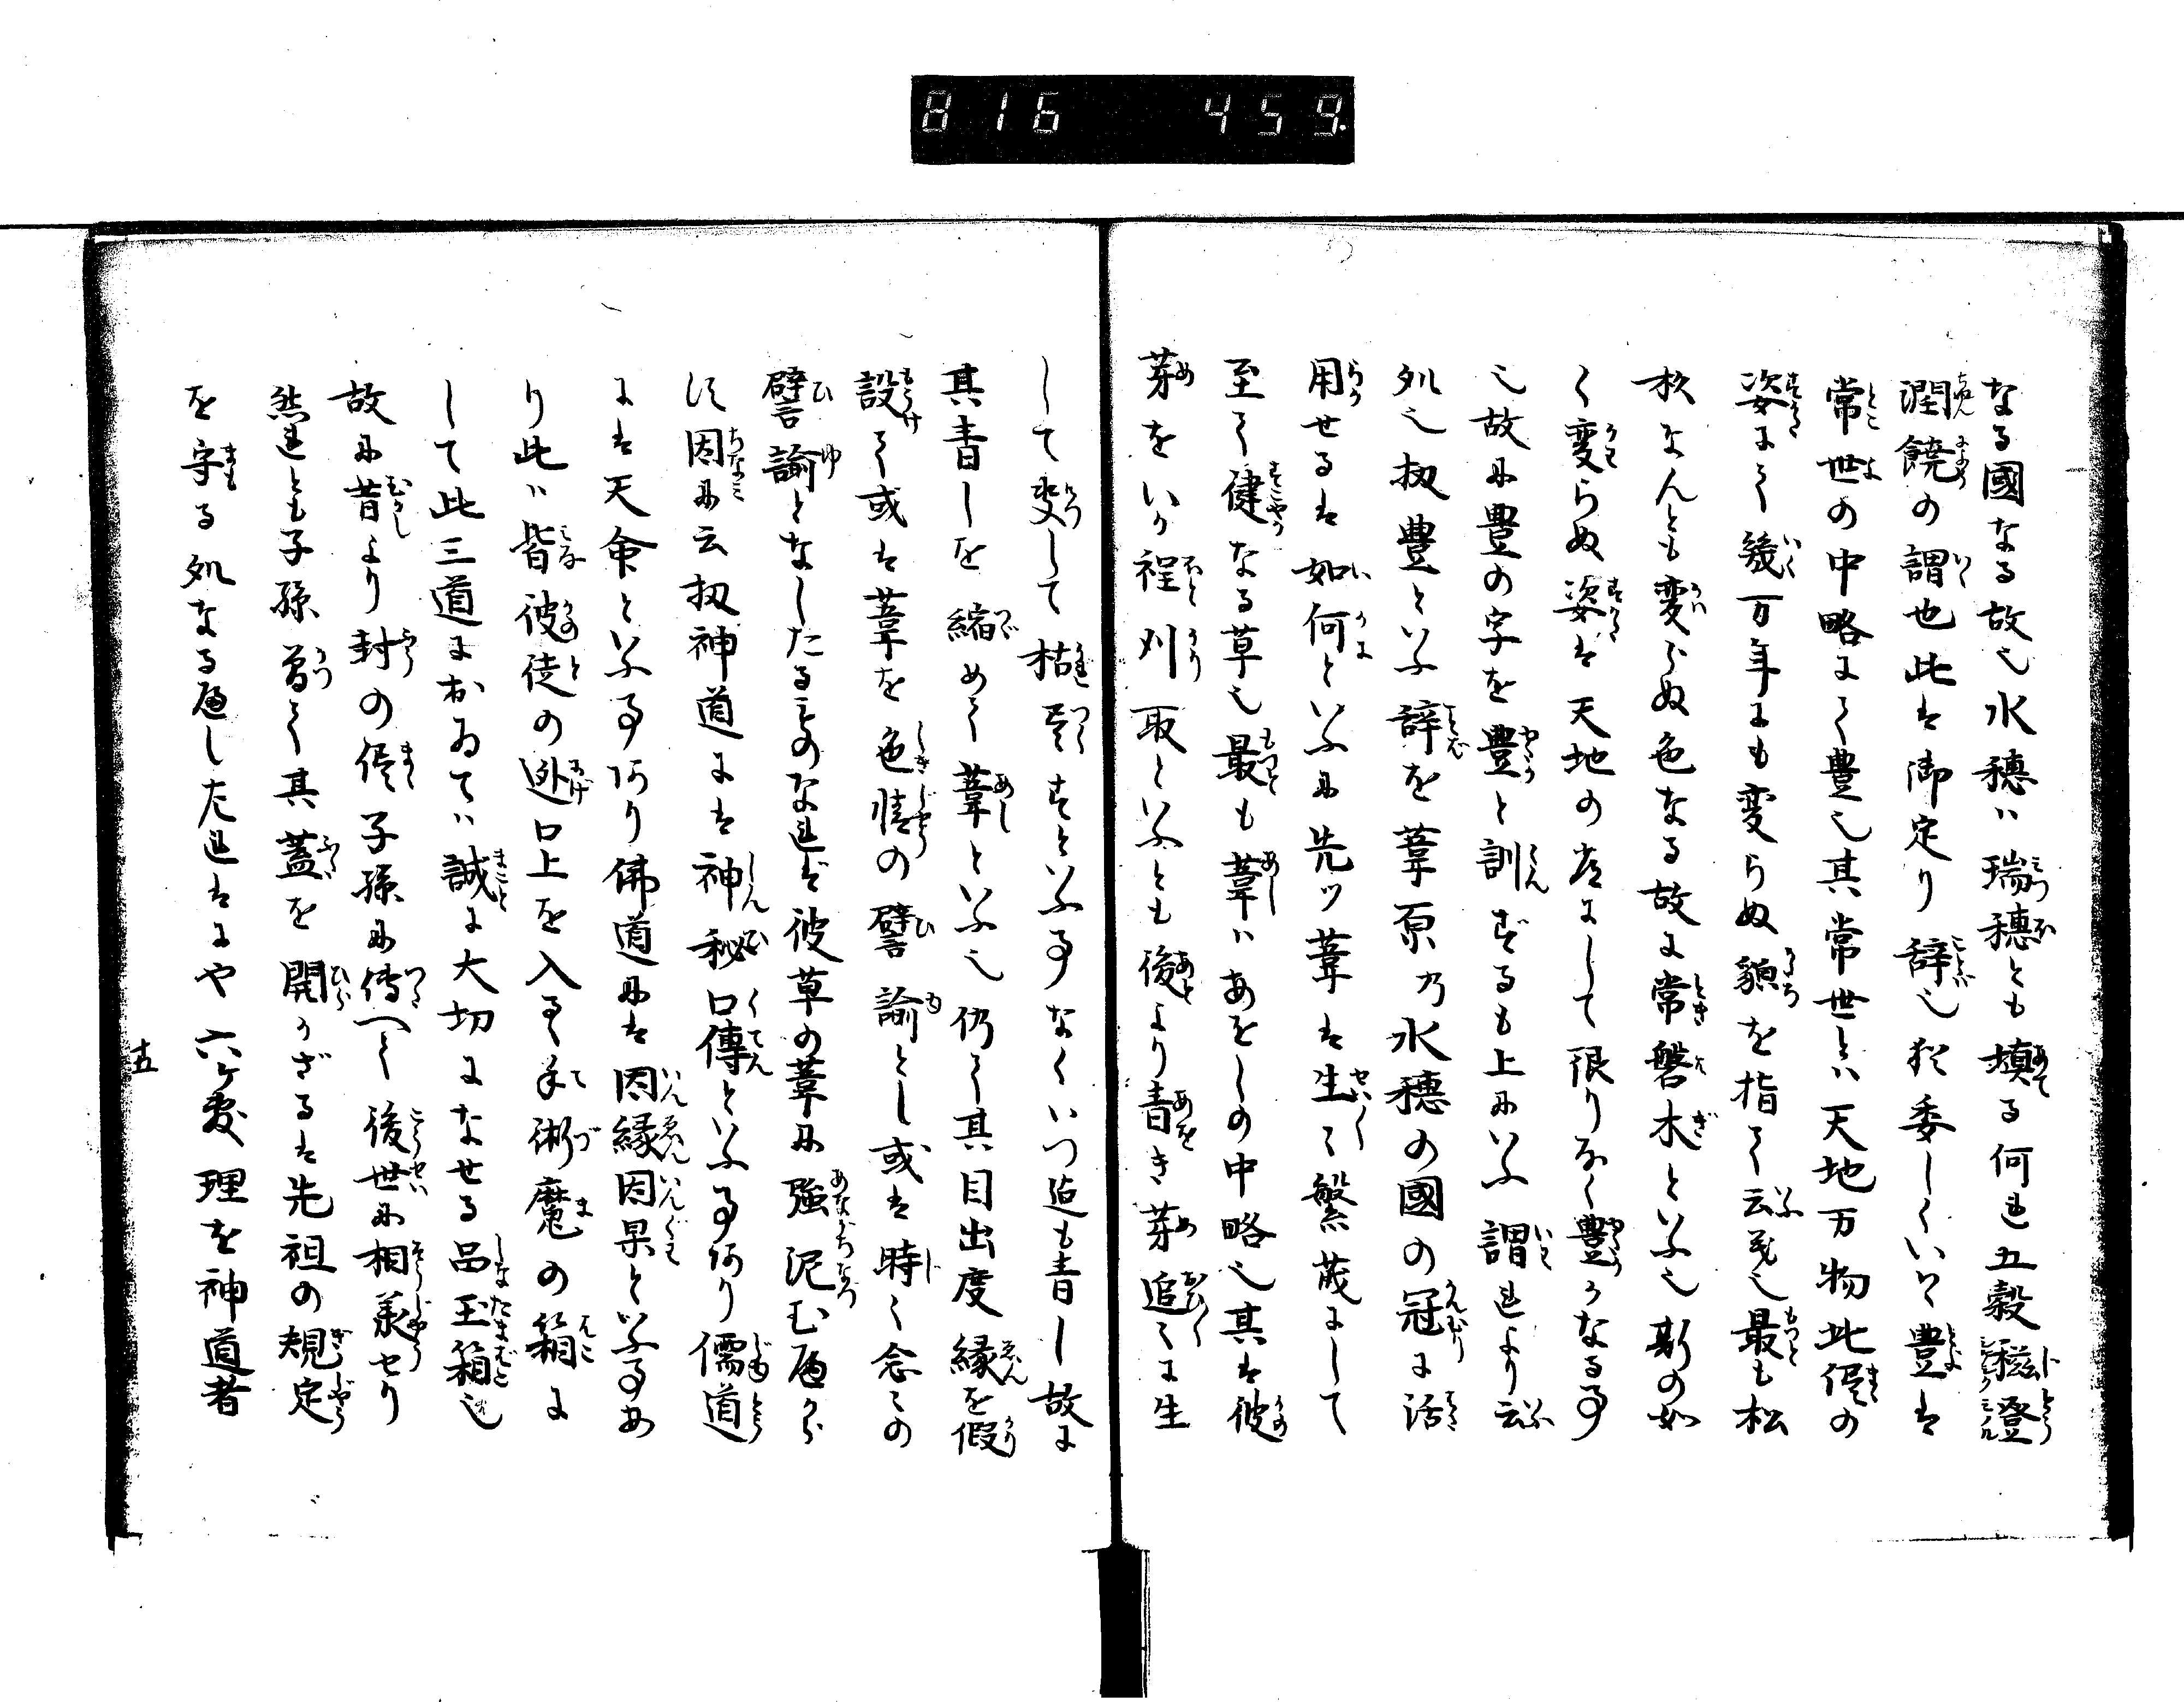 816 459.
なる國なる故也水穂ハ瑞穂とも填る何れ五穀稵澄
潤饒の謂也此は御定り辞也猶委しくいへハ豊は
常世の中略にて豊也其常世とハ天地万物此侭の
姿にて幾万年にも変らぬ貌を指て云義也最も松
杦なんとも変らぬ色なる故に常磐木といふ也斯の如
く変らぬ姿は天地の度にして限りなく豊かなる事
也故に豊の字を豊と訓ずるも上にいふ謂れより云
処也扨豊といふ辞を葦原乃水穂の國の冠に活
用せるは如何といふに先ツ葦は生〻繁茂にして
至て健なる草也最も葦ハあをしの中略也其は彼
芽をいか程刈取といふとも後より青き芽追〻に生
して変して枯るといふ事なくいつ迄も青し故に
其青しを縮めて葦といふ也仍て其目出度縁を假
設て或は葦を色情の譬諭とし或は時〻念〻の
譬諭となしたるものなれば彼草の葦に強泥む圓から
ず因に云扨神道には神秘口傳といふ事有り儒道
には天命といふ事有り佛道には因縁因果といふ事あ
り此ハ皆彼徒の迯口上を入る手術魔の箱に
して此三道におゐてハ誠に大切になせる品玉箱也
故に昔より封の侭子孫に傳へて後世に相承せり
然れとも子孫曽て其蓋を開かざるは先祖の規定
を守る処なるへしたれはにや六ヶ敷理を神道者
十五